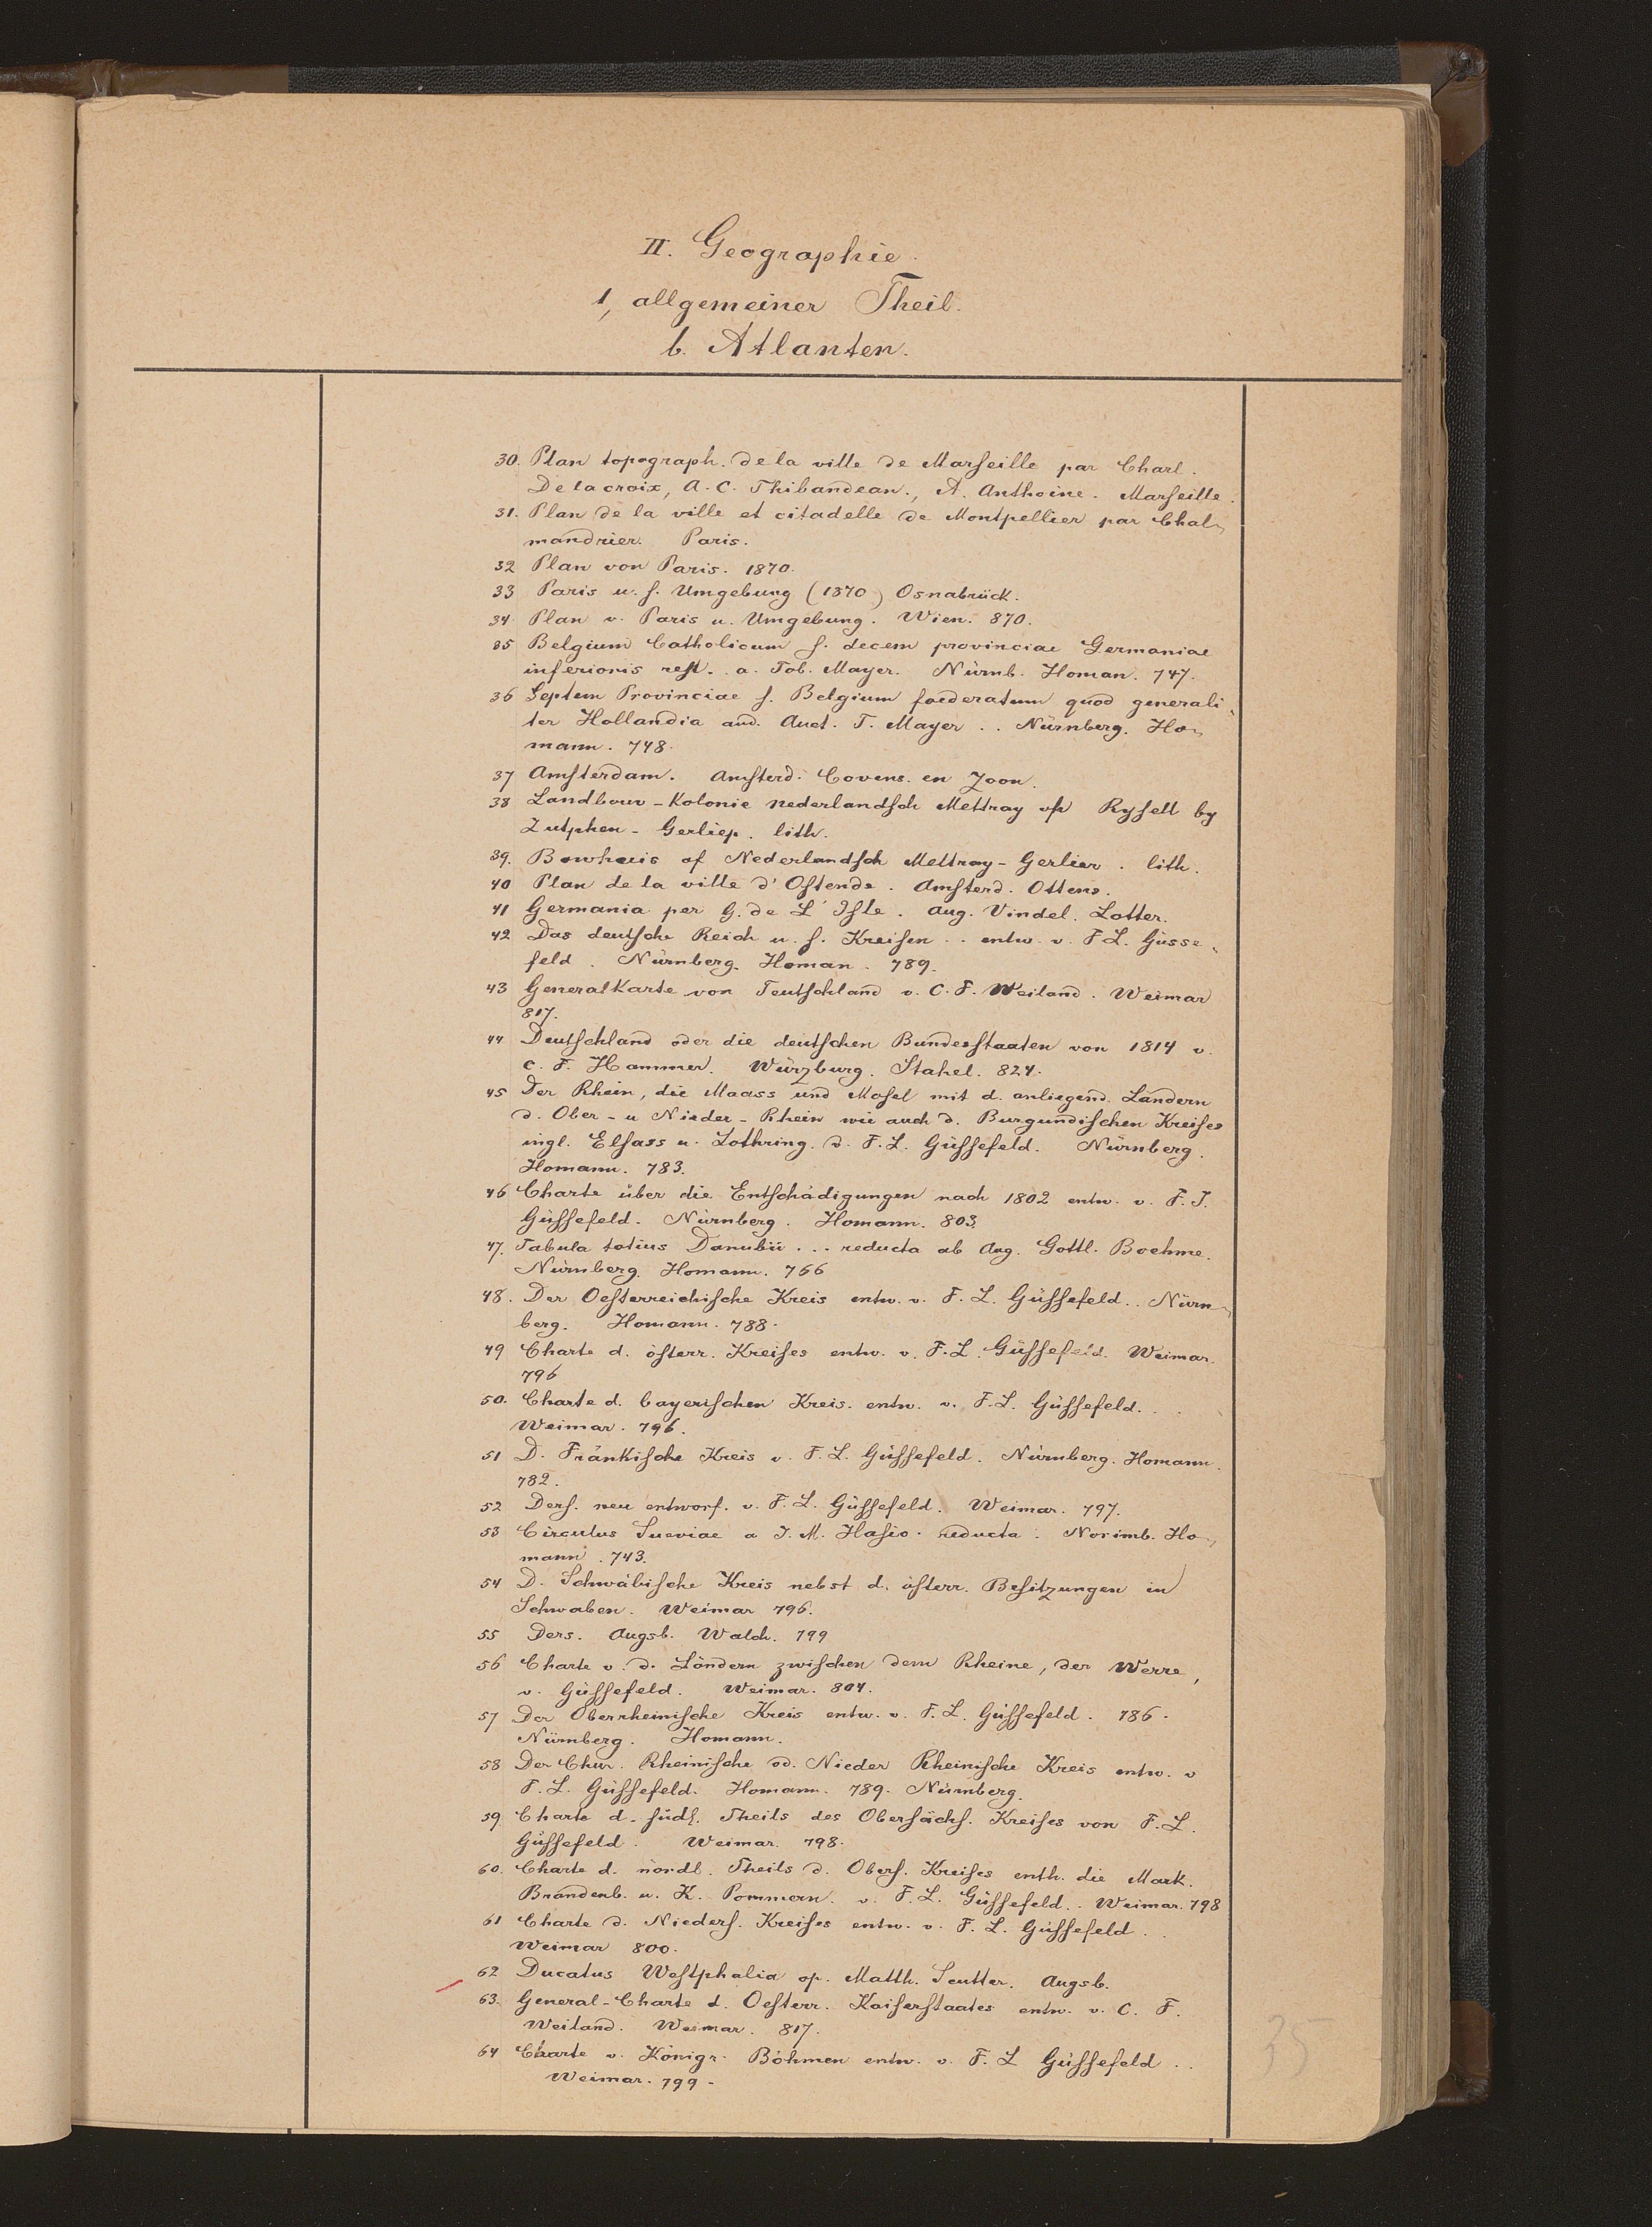 II. Geographie.
1, allgemeiner Theil.
b. Atlanten.
30. Plan topograph. de la ville de Marseille par Charl.
Delacroix, A. C. Thibandean., A. Anthoine. Marseille.
31. Plan de la ville et citadelle de Montpellier par Chal-
mandrier. Paris.
32 Plan von Paris. 1870.
33 Paris u. s. Umgebung (1870) Osnabrück.
34. Plan v. Paris u. Umgebung. Wien. 870.
35 Belgium Catholicum s. decem provinciae Germaniae
inferioris rest. . a. Tob. Mayer. Nürnb. Homan. 747.
36 Septem Provinciae s. Belgium foederatum quod generali-
ter Hollandia aud. Auct. T. Mayer . . Nürnberg. Ho-
mann. 748.
37 Amsterdam. Amsterd. Covens. en Zoon.
38 Landbouw-Kolonie nederlandsch Mettray op Rysell by
Zutphen - Gerliep. lith.
39. Bowhuis of Nederlandsch Mettray - Gerlier. lith.
40 Plan de la ville d'Ostende. Amsterd. Ottens.
41 Germania per G. de L'Isle. Aug. Vindel. Lotter.
42 Das deutsche Reich u. s. Kreisen . . entw. v. F L. Güsse-
feld. Nürnberg. Homan. 789.
43 Generalkarte von Teutschland v. C. F. Weiland. Weimar
817.
44 Deutschland oder die deutschen Bundesstaaten von 1814 v.
C. F. Hammer. Würzburg. Stahel. 824.
45 Der Rhein, die Maass und Mosel mit d. anliegend. Ländern
d. Ober- u Nieder-Rhein wie auch d. Burgundischen Kreises
ingl. Elsass u. Lothring. v. F. L. Güssefeld. Nürnberg.
Homann. 783.
46 Charte über die Entschädigungen nach 1802 entw. v. F. J.
Güssefeld. Nürnberg. Homann. 803.
47. Tabula totius Danubii . . . reducta ab Aug. Gottl. Boehme.
Nürnberg. Homann. 766
48. Der Oesterreichische Kreis entw. v. F. L. Güssefeld. . Nürn-
berg. Homann. 788.
49 Charte d. österr. Kreises entw. v. F. L. Güssefeld. Weimar.
796
50. Charte d. bayerischen Kreis. entw. v. F. L. Güssefeld. . .
Weimar. 796.
51 D. Fränkische Kreis v. F. L. Güssefeld. Nürnberg. Homann.
782.
52 Ders. neu entworf. v. F. L. Güssefeld. Weimar. 797.
53 Circulus Sueviae a J. M. Hasio. reducta. Norimb. Ho-
mann. 743.
54 D. Schwäbische Kreis nebst d. österr. Besitzungen in
Schwaben. Weimar 796.
55 Ders. Augsb. Walch. 799
56 Charte v. d. Ländern zwischen dem Rheine, der Werre,
v. Güssefeld. Weimar. 804.
57 Der Oberrheinische Kreis entw. v. F. L. Güssefeld. 786.
Nürnberg. Homann.
58 Der Chur. Rheinische od. Nieder Rheinische Kreis entw. v
F. L. Güssefeld. Homann. 789. Nürnberg.
59 Charte d. südl. Theils des Obersächs. Kreises von F. L.
Güssefeld. Weimar. 798.
60. Charte d. nördl. Theils d. Obers. Kreises enth. die Mark.
Brandenb. u. K. Pommern. v. F. L. Güssefeld. . Weimar. 798
61 Charte d. Nieders. Kreises entw. v. F. L. Güssefeld . .
Weimar 800.
62 Ducatus Westphalia op. Matth. Seutter. Augsb.
63. General-Charte d. Oesterr. Kaiserstaates entw. v. C. F.
Weiland. Weimar. 817.
64 Charte v. Königr. Böhmen entw. v. F. L Güssefeld . .
Weimar. 799.
35